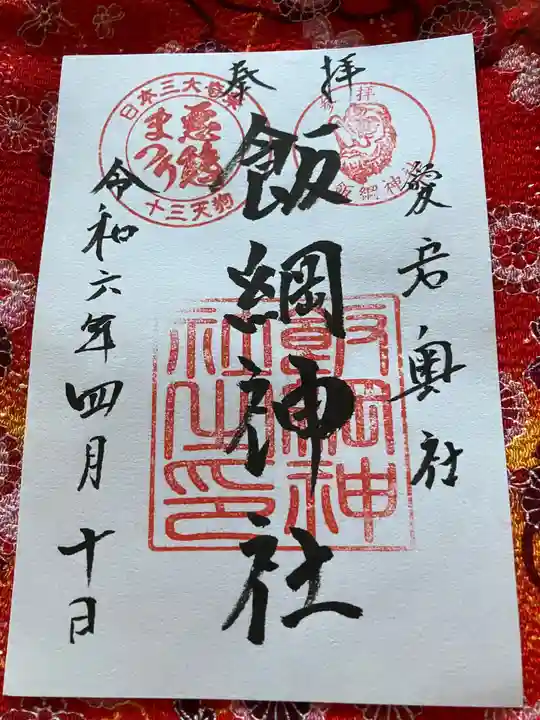 奉拝
愛宕奥社
飯綱神社
令和六年四月十日
日本三大奇祭
悪態
まつり
十三天狗
奉拝
飯綱神社
飯綱神
社之印